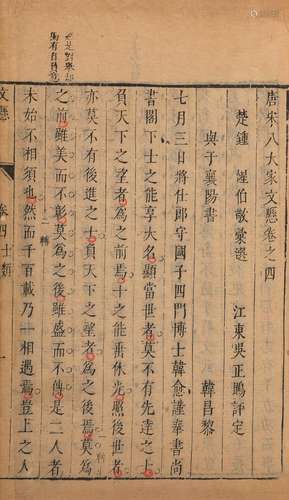 唐宋八大家文懸卷之四
楚鍾惺伯敬彙選 江東吳正鵾評定
與于襄陽書 韓昌黎
七月三日將仕郎守國子四門博士韓愈謹奉書尚
書閣下士之能享大名顯當世者莫不有先達之士
負天下之望者為之前焉士之能垂休光照後世者
亦莫不有後進之士負天下之望者為之後焉莫為
之前雖美而不彰莫為之後雖盛而不傳是二人者
未始不相須也然而千百載乃一相遇焉豈上之人
文懸 卷四 士類 一